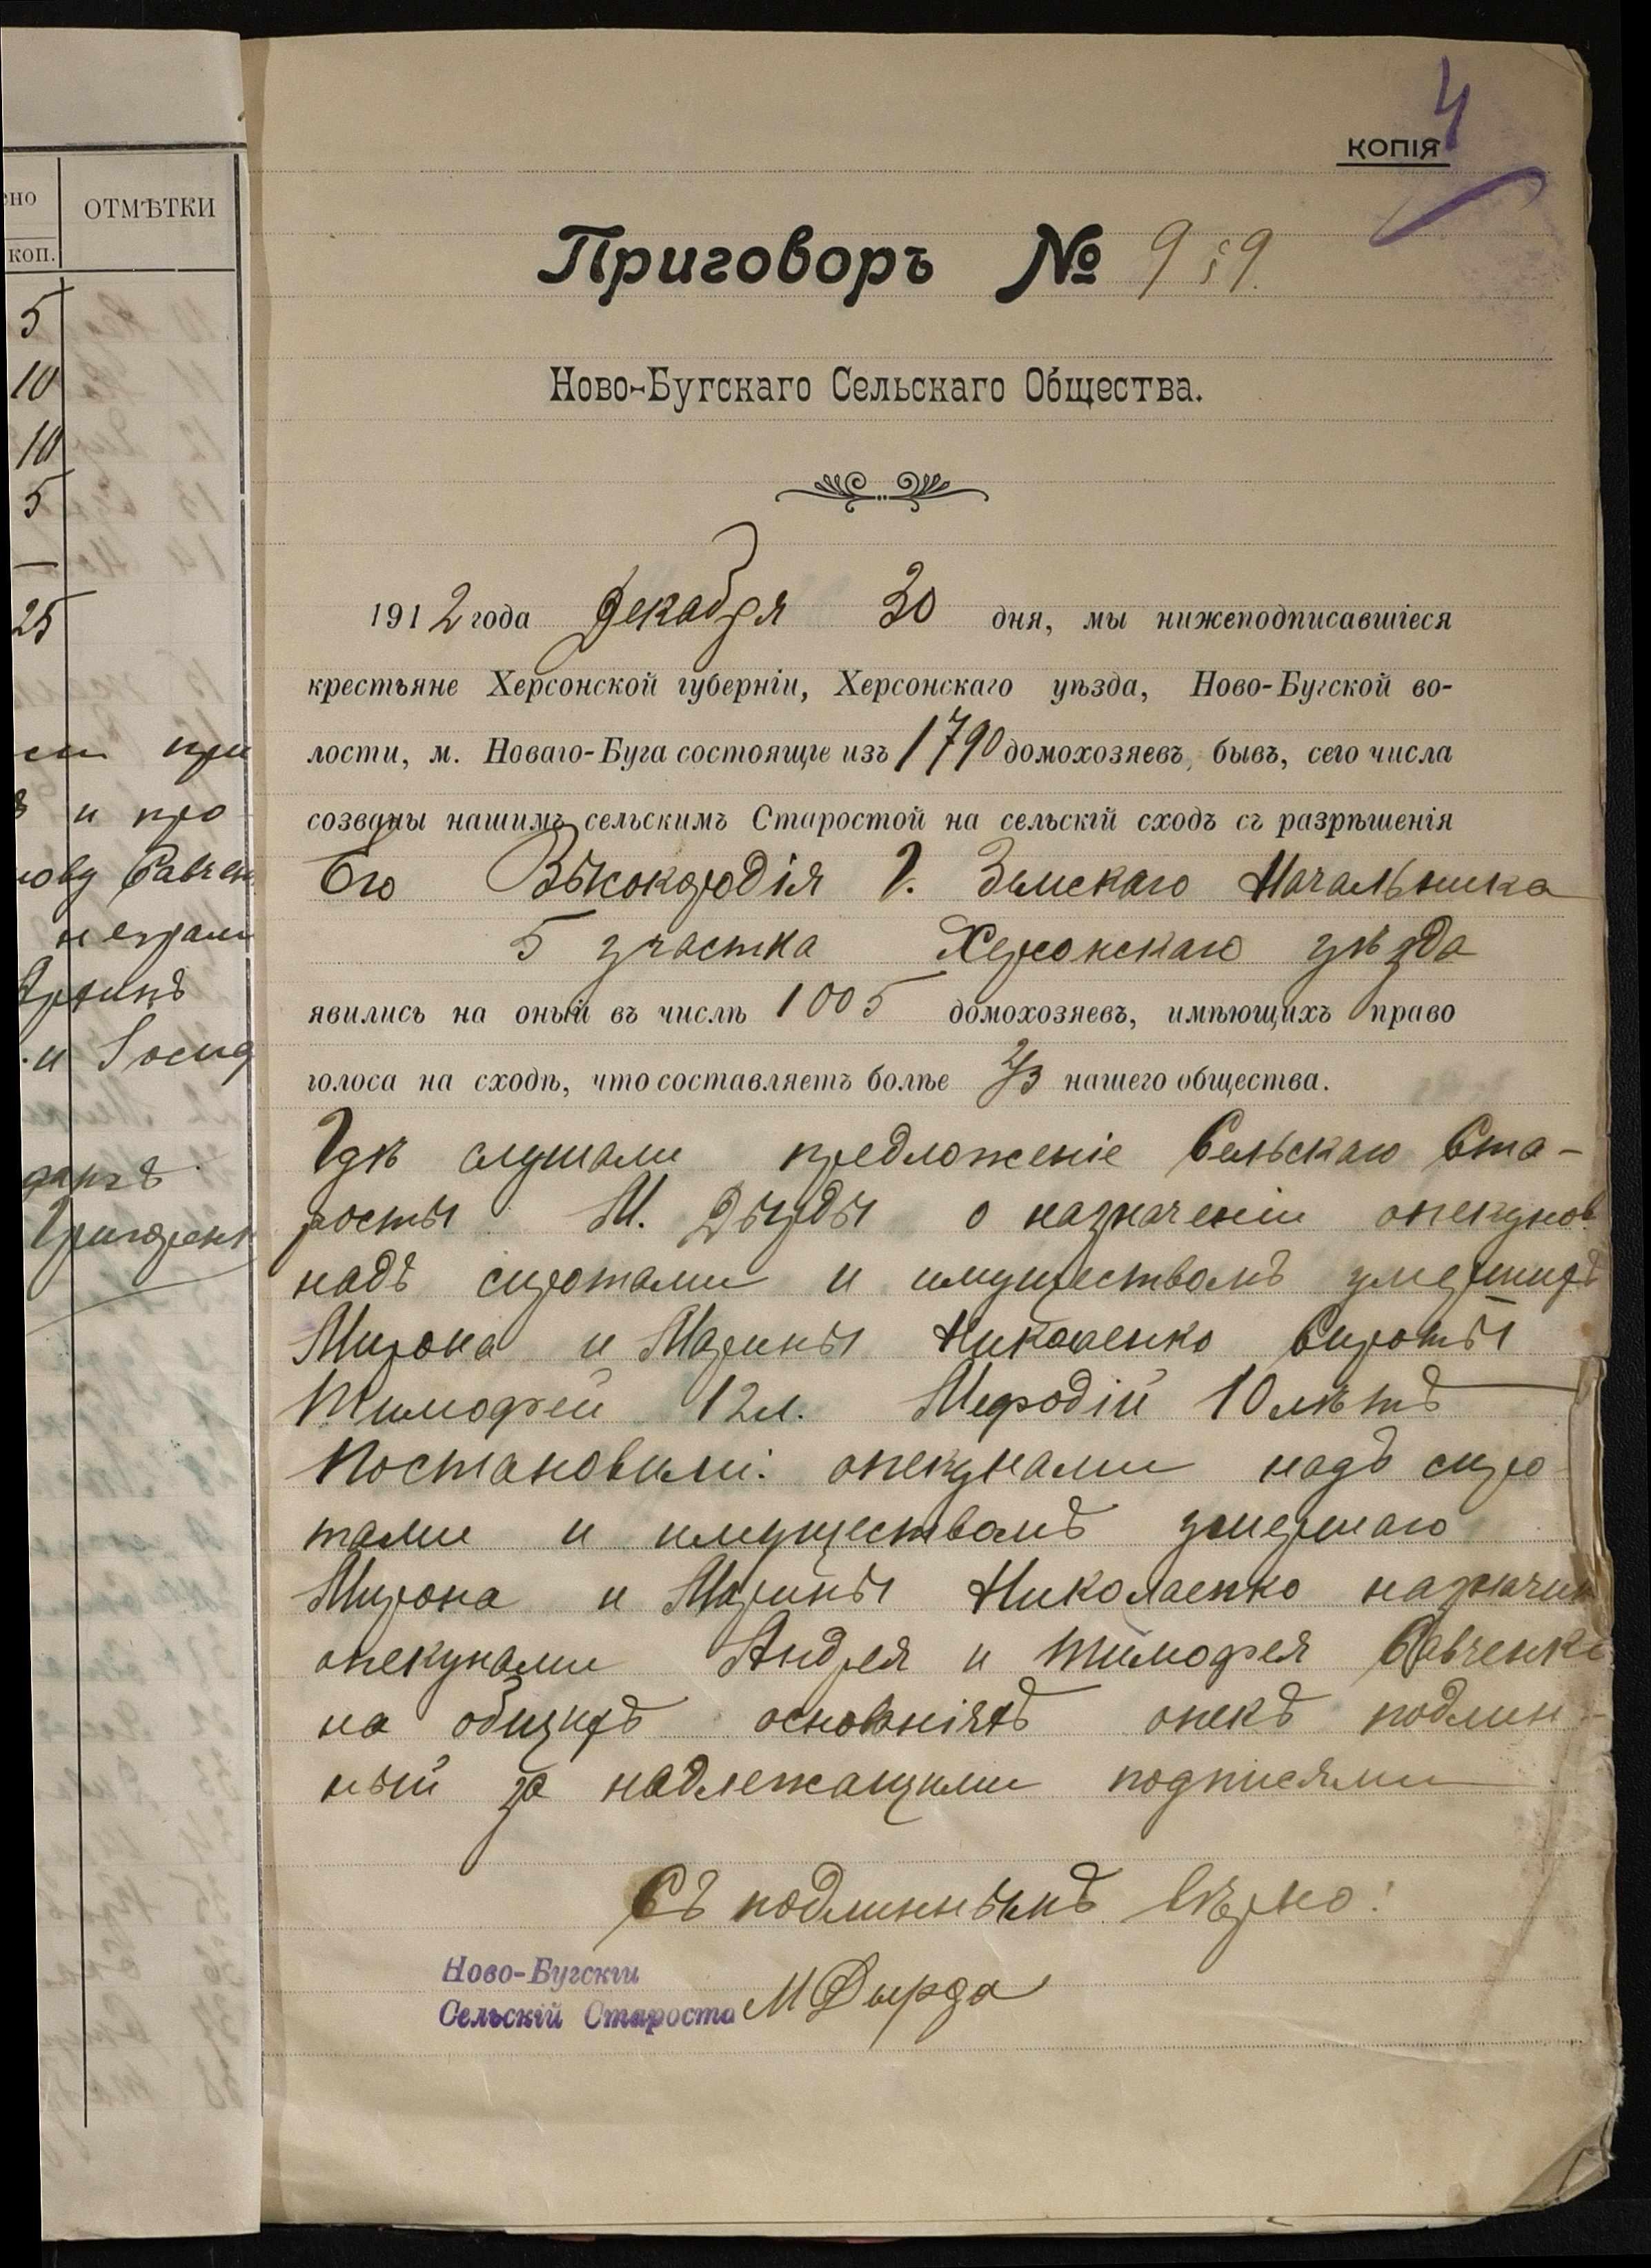 ено
коп.
ОТМѢТКИ
5
10
10
5
—
25
при
и про
Савчен
Госпд
Григорен
4
КОПІЯ
Приговоръ № 959.
Ново-Бугскаго Сельскаго Общества.
1912 года Декабря 30 дня, мы нижеподписавшіеся
крестьяне Херсонской губерніи, Херсонскаго уѣзда, Ново-Бугской во-
лости, м. Новаго-Буга состоящіе изъ 1790 домохозяевъ, бывъ, сего числа
созваны нашимъ сельскимъ Старостой на сельскій сходъ съ разрѣшенія
Его Высокородія Г. Земскаго Начальника
5 участка Херсонскаго уѣзда
явились на оный въ числѣ 1005 домохозяевъ, имѣющихъ право
голоса на сходѣ, что составляетъ болѣе 2/3 нашего общества.
Гдѣ слушали предложеніе Сельскаго Ста-
росты М. Дырды о назначеніи опекунов
надъ сиротами и имуществомъ умершихъ
Мирона и Марины Николаенко Сироты
Тимофей 12 л. Мефодій 10 лѣтъ
Постановили: опекунами надъ сиро
тами и имуществомъ умершаго
Мирона и Марины Николаенко назначит
опекунами Андрея и Тимофея Савченко
на общихъ основніяхъ опекъ подлин-
ный за надлежащими подписями
Съ подлиннымъ вѣрно:
Ново-Бугскій
Сельскій Староста М Дырда